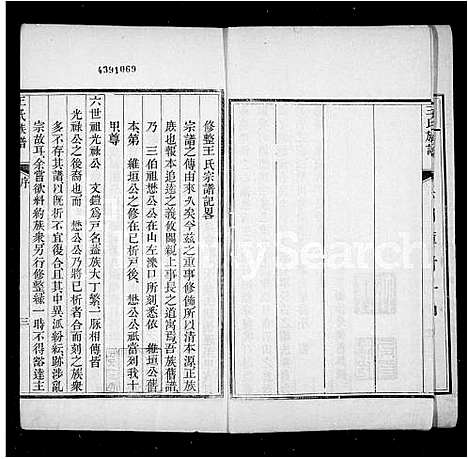 4391069
修整王氏宗譜記畧
宗譜之傳由來久矣今茲之重事修飾所以清本源正族
族也報本追遠之義攸關親上事長之道寓焉吾族舊譜
乃　三伯祖懋公公在山左濼口所刻悉依　維垣公舊
本第　維垣公之修在已析戶後　懋公公祇當刻我十
甲尊
六世祖光祿公　文鎧爲戶名蓋以大丁繁一脈相傳皆
光祿公之裔也而　懋公公乃將已析者合而刻之族衆
多不存其以旣析不宜復合且其中異派紛紜跡涉亂
宗故耳余嘗欲糾約族衆另行修整緣一時不得豁達主
王氏族譜
序
三
王氏族譜
Search